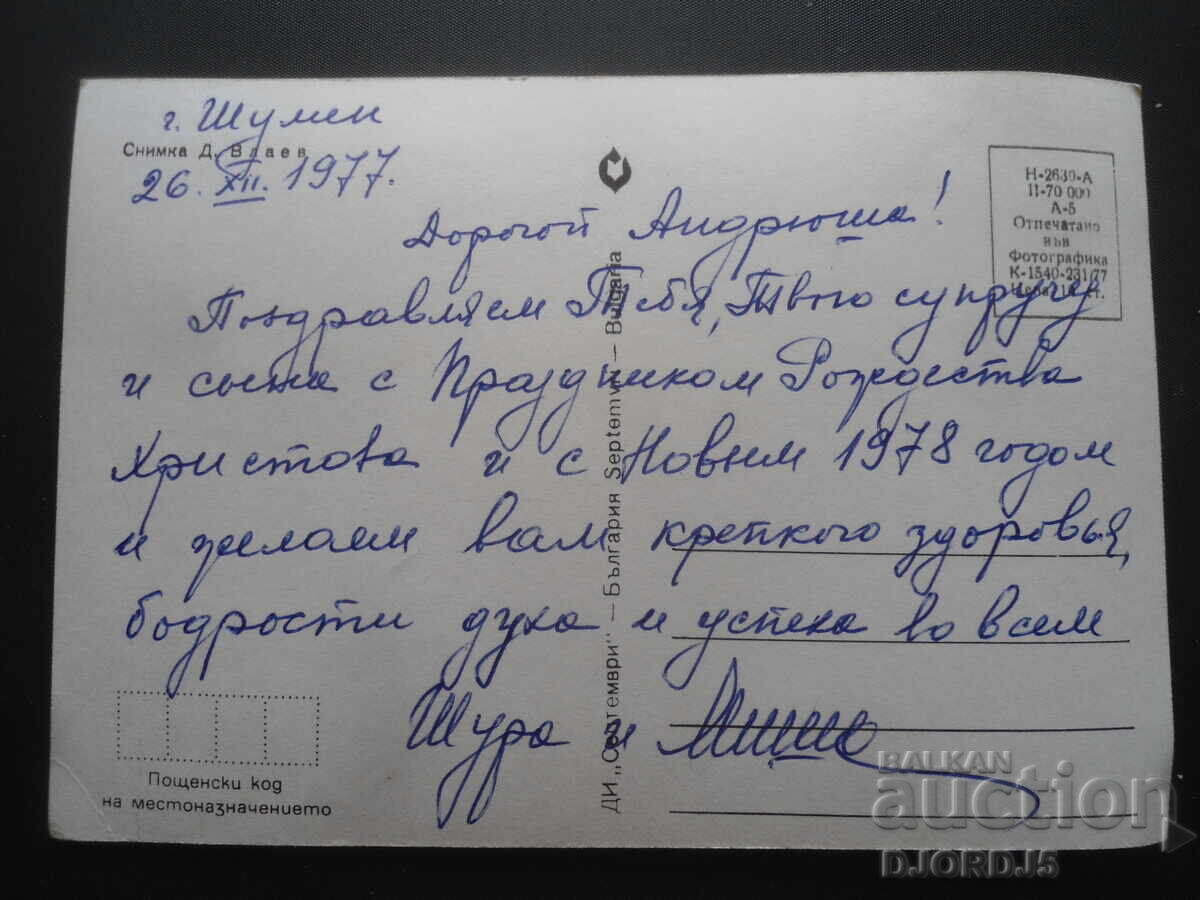 г. Шумен
Снимка Д. Влаев
26. XII. 1977.
Дорогой Андрюша!
Поздравляем Тебя, Твою супругу
и сына с Праздником Рождества
Христова и с Новым 1978 годом
и желаем вам крепкого здоровья,
бодрости духа и успеха во всем
Шура и Миша
Н-2630-А
II-70 000
А-5
Отпечатано
във
Фотографика
К-1540-231/77
ДИ „Септември" — България Septemvri — Bulgaria
Пощенски код
на местоназначението
BALKAN
auction
DJORDJ5